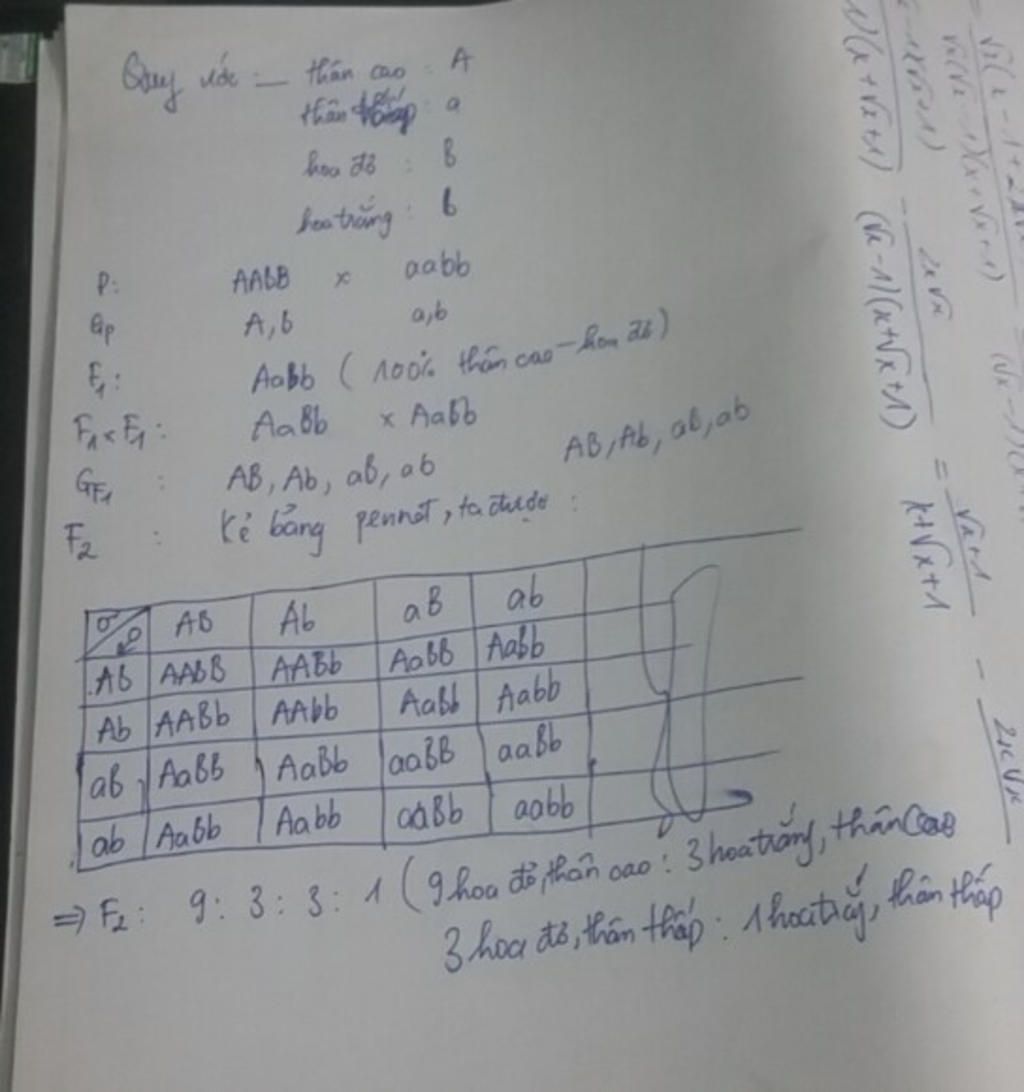 Quy ước : - thân cao : A
thân thấp : a
hoa đỏ : B
hoa trắng : b
P: AABB x aabb
Gp A, b a,b
F1: AaBb ( 100% thân cao - hoa đỏ )
F1 x F1 : AaBb x AaBb
GF1 : AB, Ab, aB, ab AB, Ab, aB, ab
F2 : Kẻ bảng pennét, ta được :
♂ ♀ AB Ab aB ab
AB AABB AABb AaBB AaBb
Ab AABb AAbb AaBb Aabb
aB AaBB AaBb aaBB aaBb
ab AaBb Aabb aaBb aabb
=> F2 : 9 : 3 : 3 : 1 ( 9 hoa đỏ, thân cao : 3 hoa trắng, thân cao
3 hoa đỏ, thân thấp : 1 hoa trắg, thân thấp
(x+√x+1) - 2x√x / (√x-1)(x+√x+1) = √x+1 / x+√x+1 - 2x√x